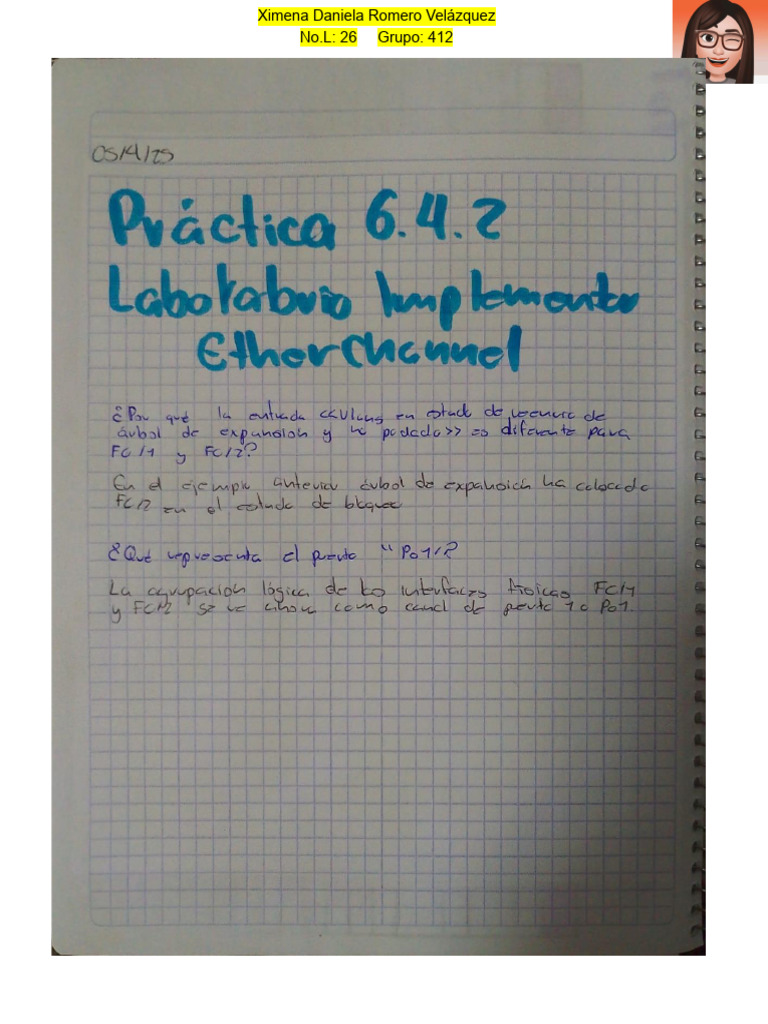 Ximena Daniela Romero Velázquez
No.L: 26 Grupo: 412
05/4/25
Práctica 6.4.2
Laboratorio Implemente
EtherChannel
¿Por qué la entrada <<Vlans en estado de reenvío de
árbol de expansión y no podado>> es diferente para
F0/1 y F0/2?
En el ejemplo anterior árbol de expansión ha colocado
F0/2 en el estado de bloqueo
¿Qué representa el puerto "Po1"?
La agrupación lógica de las interfaces físicas F0/1
y F0/2 se ve ahora como canal de puerto 1 o Po1.